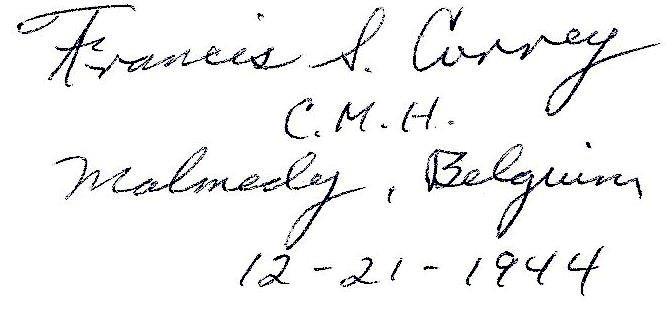 Francis S. Currey
C.M.H.
Malmedy, Belgium
12-21-1944